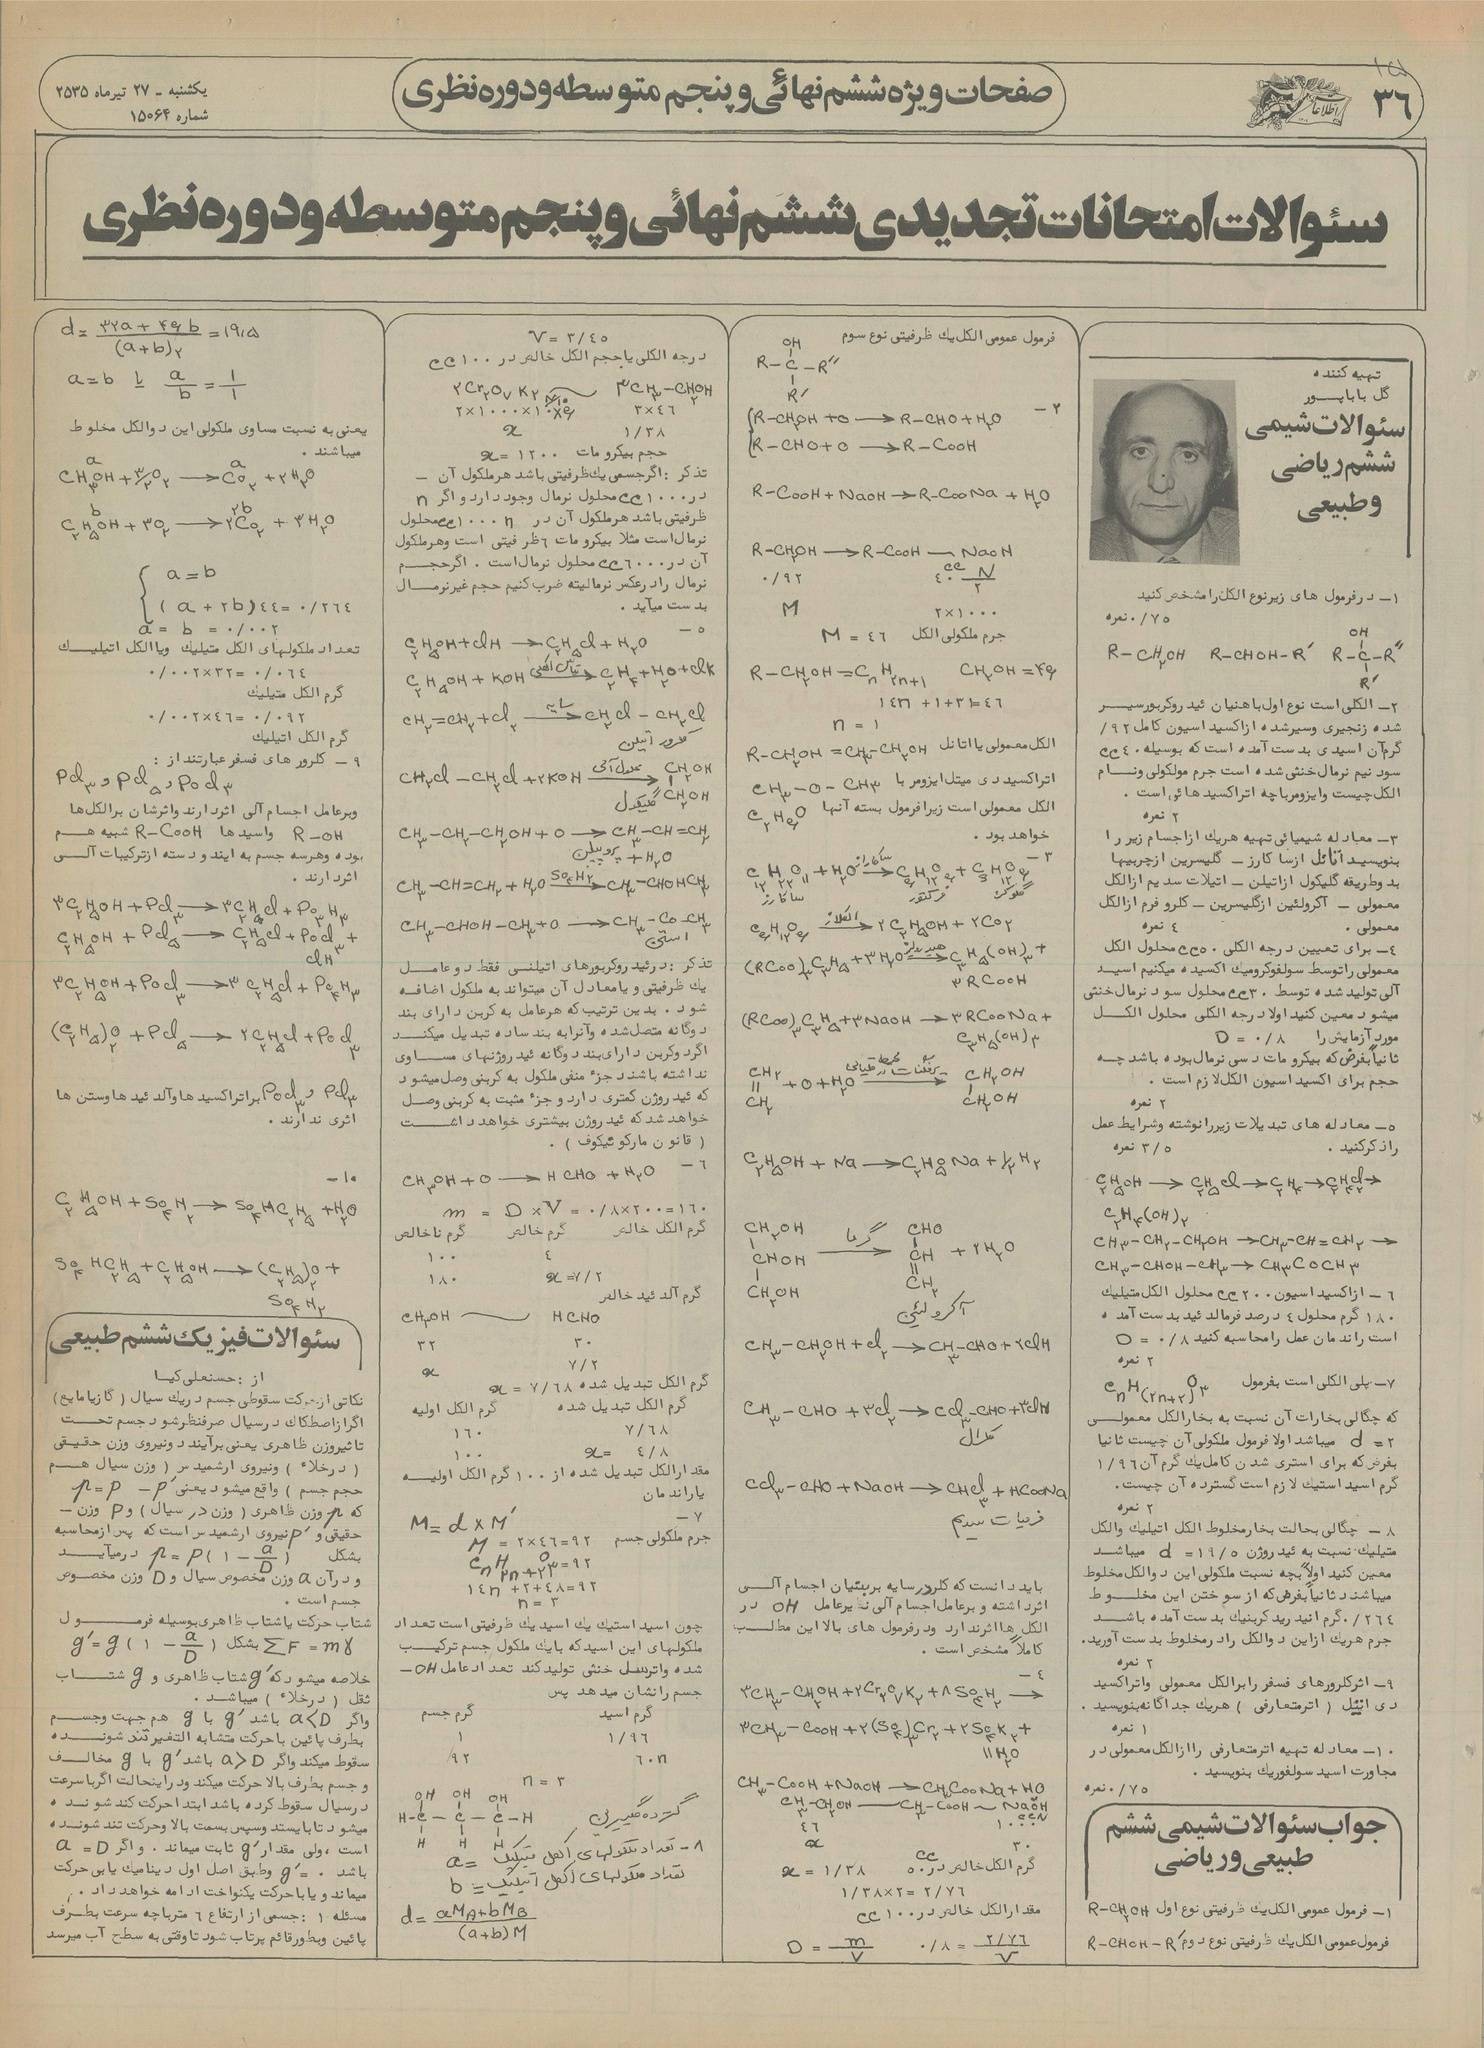 ۳۶
اطلاعات
صفحات ویژه ششم نهائی و پنجم متوسطه و دوره نظری
یکشنبه - ۲۷ تیرماه ۲۵۳۵
شماره ۱۵۰۶۴
سئوالات امتحانات تجدیدی ششم نهائی و پنجم متوسطه و دوره نظری
تهیه کننده
گل باباپور
سئوالات شیمی
ششم ریاضی
و طبیعی
۱- در فرمول های زیر نوع الکل را مشخص کنید
۰/۷۵ نمره
OH
R-CH۲OH R-CHOH-R′ R-C-R″
R′
۲- الکلی است نوع اول با هنیان ئیدروکربور سیر
شده زنجیری و سیر شده از اکسیداسیون کامل ۹۲/
گرم آن اسیدی بدست آمده است که بوسیله ۴۰cc
سود نیم نرمال خنثی شده است جرم مولکولی و نام
الکل چیست و ایزومر با چه اتر اکسیدهائی است .
۲ نمره
۳- معادله شیمیائی تهیه هریک از اجسام زیر را
بنویسید اتانل از ساکارز - گلیسرین از چربیها
بدو طریقه گلیکول از اتیلن - اتیلات سدیم از الکل
معمولی - آکرولئین از گلیسرین - کلروفرم از الکل
معمولی . ٤ نمره
٤- برای تعیین درجه الکلی ۵۰cc محلول الکل
معمولی را توسط سولفوکرومیک اکسیده میکنیم اسید
آلی تولید شده توسط ۳۰cc محلول سود نرمال خنثی
میشود معین کنید اولا درجه الکلی محلول الکل
مورد آزمایش را D = ۰/۸
ثانیاً بفرض که بیکرومات دسی نرمال بوده باشد چه
حجم برای اکسیداسیون الکل لازم است .
۲ نمره
۵- معادله های تبدیلات زیر را نوشته و شرایط عمل
را ذکر کنید . ۳/۵ نمره
C۲H۵OH → C۲H۵Cl → C۲H۴ → C۲H۴Cl۲ →
C۲H۴(OH)۲
CH۳-CH۲-CH۲OH → CH۳-CH=CH۲ →
CH۳-CHOH-CH۳ → CH۳COCH۳
۶- از اکسیداسیون ۲۰۰cc محلول الکل متیلیک
۱۸۰ گرم محلول ٤ درصد فرمالدئید بدست آمده
است راندمان عمل را محاسبه کنید D = ۰/۸
۲ نمره
۷- پلی الکلی است بفرمول CnH(۲n+۲)O۳
که چگالی بخارات آن نسبت به بخار الکل معمولی
d = ۲ میباشد اولا فرمول ملکولی آن چیست ثانیا
بفرض که برای استری شدن کامل یک گرم آن ۱/۹۶
گرم اسید استیک لازم است گسترده آن چیست.
۲ نمره
۸- چگالی بحالت بخار مخلوط الکل اتیلیک و الکل
متیلیک نسبت به ئیدروژن d = ۱۹/۵ میباشد
معین کنید اولاً بچه نسبت ملکولی این دو الکل مخلوط
میباشند ثانیاً بفرض که از سوختن این مخلوط
۰/۲٦٤ گرم انیدرید کربنیک بدست آمده باشد
جرم هریک از این دو الکل را در مخلوط بدست آورید.
۲ نمره
۹- اثر کلرورهای فسفر را بر الکل معمولی و اتراکسید
دی اتیل ( اتر متعارفی ) هریک جداگانه بنویسید .
۱ نمره
۱۰- معادله تهیه اتر متعارفی را از الکل معمولی در
مجاورت اسید سولفوریک بنویسید .
۰/۷۵ نمره
جواب سئوالات شیمی ششم
طبیعی و ریاضی
۱- فرمول عمومی الکل یک ظرفیتی نوع اول R-CH۲OH
فرمول عمومی الکل یک ظرفیتی نوع دوم R-CHOH-R′
فرمول عمومی الکل یک ظرفیتی نوع سوم
OH
R-C-R″
R′
۲-
R-CH۲OH+O → R-CHO+H۲O
R-CHO+O → R-COOH
R-COOH+NaOH → R-COONa + H۲O
R-CH۲OH → R-COOH — NaOH
۰/۹۲ ۴۰cc N/۲
M ۲×۱۰۰۰
جرم ملکولی الکل M = ٤٦
R-CH۲OH = CnH۲n+۱ CH۲OH = ۴۶
۱٤n+۱+۳۱=٤٦
n = ۱
الکل معمولی یا اتانل R-CH۲OH = CH۳-CH۲OH
اتراکسید دی میتل ایزومر با CH۳-O-CH۳
الکل معمولی است زیرا فرمول بسته آنها C۲H۶O
خواهد بود .
۳-
C۱۲H۲۲O۱۱+H۲O → C۶H۱۲O۶+C۶H۱۲O۶
ساکارز فرکتوز گلوکز
C۶H۱۲O۶ → ۲C۲H۵OH+۲CO۲
(RCOO)۳C۳H۵+۳H۲O → C۳H۵(OH)۳+
۳RCOOH
(RCOO)۳C۳H۵+۳NaOH → ۳RCOONa+
C۳H۵(OH)۳
CH۲ CH۲OH
॥ +O+H۲O →
CH۲ CH۲OH
C۲H۵OH+Na → C۲H۵ONa+۱/۲H۲
CH۲OH CHO
CHOH گرما → CH + ۲H۲O
CH۲OH CH۲
آکرولئین
CH۳-CH۲OH+Cl۲ → CH۳-CHO+۲ClH
CH۳-CHO+۳Cl۲ → CCl۳-CHO+۳ClH
کلرال
CCl۳-CHO+NaOH → CHCl۳+HCOONa
فرمیات سدیم
باید دانست که کلر در سایه بر بنیان اجسام آلی
اثر داشته و بر عامل اجسام آلی نظیر عامل OH در
الکل ها اثر ندارد و در فرمول های بالا این مطلب
کاملاً مشخص است .
٤-
۳CH۳-CH۲OH+۲Cr۲O۷K۲+۸SO۴H۲ →
۳CH۳-COOH+۲(SO۴)۳Cr۲+۲SO۴K۲+
۱۱H۲O
CH۳-COOH+NaOH → CH۳COONa+H۲O
CH۳-CH۲OH — CH۳-COOH — NaOH
٤٦ ۱۰۰۰cc N
x ۳۰
گرم الکل خالص در ۵۰cc x = ۱/۳۸
۱/۳۸×۲ = ۲/۷٦
مقدار الکل خالص در ۱۰۰cc
D = m/V ۰/۸ = ۲/۷٦/V
V = ۳/٤۵
درجه الکلی یا حجم الکل خالص در ۱۰۰cc
۲Cr۲O۷K۲ N/۱۰ ۳CH۳-CH۲OH
۲×۱۰۰۰×۱۰×۶ ۳×٤٦
x ۱/۳۸
حجم بیکرومات x = ۱۲۰۰
تذکر : اگر جسمی یک ظرفیتی باشد هر ملکول آن
در ۱۰۰۰cc محلول نرمال وجود دارد و اگر n
ظرفیتی باشد هر ملکول آن در n ۱۰۰۰cc محلول
نرمال است مثلا بیکرومات ٦ ظرفیتی است و هر ملکول
آن در ٦۰۰۰cc محلول نرمال است . اگر حجم
نرمال را در عکس نرمالیته ضرب کنیم حجم غیر نرمال
بدست میآید .
۵-
C۲H۵OH+ClH → C۲H۵Cl+H۲O
C۲H۵OH+KOH → C۲H۴+H۲O+ClK
CH۲=CH۲+Cl۲ سایه → CH۲Cl-CH۲Cl
کلرور اتیلن
CH۲Cl-CH۲Cl+۲KOH محلول آبی → CH۲OH
CH۲OH
گلیکول
CH۳-CH۲-CH۲OH+O → CH۳-CH=CH۲
پروپیلن +H۲O
CH۳-CH=CH۲+H۲O SO۴H۲ → CH۳-CHOHCH۳
CH۳-CHOH-CH۳+O → CH۳-CO-CH۳
استن
تذکر : در ئیدروکربورهای اتیلنی فقط دو عامل
یک ظرفیتی و یا معادل آن میتواند به ملکول اضافه
شود . بدین ترتیب که هر عامل به کربن دارای بند
دوگانه متصل شده و آنرا به بند ساده تبدیل میکند
اگر دو کربن دارای بند دوگانه ئیدروژنهای مساوی
نداشته باشند جزء منفی ملکول به کربنی وصل میشود
که ئیدروژن کمتری دارد و جزء مثبت به کربنی وصل
خواهد شد که ئیدروژن بیشتری خواهد داشت
( قانون مارکونیکوف ) .
٦-
CH۳OH+O → HCHO + H۲O
m = D×V = ۰/۸×۲۰۰=۱٦۰
گرم الکل خالص گرم خالص گرم ناخالص
٤ ۱۰۰
x=۷/۲ ۱۸۰
گرم آلدئید خالص
CH۳OH — HCHO
۳۲ ۳۰
x ۷/۲
گرم الکل تبدیل شده x = ۷/٦۸
گرم الکل تبدیل شده گرم الکل اولیه
۷/٦۸ ۱٦۰
x = ٤/۸ ۱۰۰
مقدار الکل تبدیل شده از ۱۰۰ گرم الکل اولیه
یا راندمان
۷-
M = d × M′
جرم ملکولی جسم M = ۲×٤٦ = ۹۲
CnH۲n+۲O۳ = ۹۲
۱٤n+۲+٤۸=۹۲
n = ۳
چون اسید استیک یک اسید یک ظرفیتی است تعداد
ملکولهای این اسید که با یک ملکول جسم ترکیب
شده و استر خنثی تولید کند تعداد عامل OH-
جسم را نشان میدهد پس
گرم اسید گرم جسم
۱/۹٦ ۱
٦۰n ۹۲
n = ۳
OH OH OH
H-C-C-C-H گسترده گلیسرین
H H H
۸- تعداد ملکولهای الکل متیلیک = a
تعداد ملکولهای الکل اتیلیک = b
d = aMA+bMB/(a+b)M
d = ۳۲a+۴۶b/(a+b)۲ = ۱۹٫۵
a=b یا a/b = ۱/۱
یعنی به نسبت مساوی ملکولی این دو الکل مخلوط
میباشند .
a a
CH۳OH+۳/۲O۲ → CO۲+۲H۲O
b ۲b
C۲H۵OH+۳O۲ → ۲CO۲+۳H۲O
a=b
(a+۲b)٤٤=۰/۲٦٤
a = b = ۰/۰۰۲
تعداد ملکولهای الکل متیلیک و یا الکل اتیلیک
۰/۰۰۲×۳۲=۰/۰٦٤
گرم الکل متیلیک
۰/۰۰۲×٤٦=۰/۰۹۲
گرم الکل اتیلیک
۹- کلرورهای فسفر عبارتند از :
PCl۳ و PCl۵ و POCl۳
و بر عامل اجسام آلی اثر دارند و اثرشان بر الکل ها
R-OH و اسیدها R-COOH شبیه هم
بوده و هر سه جسم به ایندو دسته از ترکیبات آلی
اثر دارند .
۳C۲H۵OH+PCl۳ → ۳C۲H۵Cl+PO۳H۳
C۲H۵OH+PCl۵ → C۲H۵Cl+POCl۳+
ClH
۳C۲H۵OH+POCl۳ → ۳C۲H۵Cl+PO۴H۳
(C۲H۵)۲O+PCl۵ → ۲C۲H۵Cl+POCl۳
PCl۳ و POCl۳ بر اتراکسیدها و آلدئیدها و ستن ها
اثری ندارند .
۱۰-
C۲H۵OH+SO۴H۲ → SO۴HC۲H۵+H۲O
SO۴HC۲H۵+C۲H۵OH → (C۲H۵)۲O+
SO۴H۲
سئوالات فیزیک ششم طبیعی
از : حسنعلی کیا
نکاتی از حرکت سقوطی جسم در یک سیال ( گاز یا مایع )
اگر از اصطکاک در سیال صرفنظر شود جسم تحت
تاثیر وزن ظاهری یعنی برآیند دو نیروی وزن حقیقی
( در خلاء ) و نیروی ارشمیدس ( وزن سیال هم
حجم جسم ) واقع میشود یعنی p=P-P′
که p وزن ظاهری ( وزن در سیال ) و P وزن
حقیقی و P′ نیروی ارشمیدس است که پس از محاسبه
بشکل p = P(۱-a/D) درمیآید
و در آن a وزن مخصوص سیال و D وزن مخصوص
جسم است .
شتاب حرکت یا شتاب ظاهری بوسیله فرمول
ΣF=mγ بشکل g′=g(۱-a/D)
خلاصه میشود که g′ شتاب ظاهری و g شتاب
ثقل ( در خلاء ) میباشد .
و اگر a<D باشد g′ با g هم جهت و جسم
بطرف پائین با حرکت متشابه التغیر تند شونده
سقوط میکند و اگر a>D باشد g′ با g مخالف
و جسم بطرف بالا حرکت میکند و در اینحالت اگر با سرعت
در سیال سقوط کرده باشد ابتدا حرکت کند شونده
میشود تا بایستد و سپس بسمت بالا و حرکت تند شونده
است ، ولی مقدار g′ ثابت میماند . و اگر a=D
باشد ۰=g′ و طبق اصل اول دینامیک یا بی حرکت
میماند و یا با حرکت یکنواخت ادامه خواهد داد .
مسئله ۱ : جسمی از ارتفاع ٦ متر با چه سرعت بطرف
پائین و بطور قائم پرتاب شود تا وقتی به سطح آب میرسد